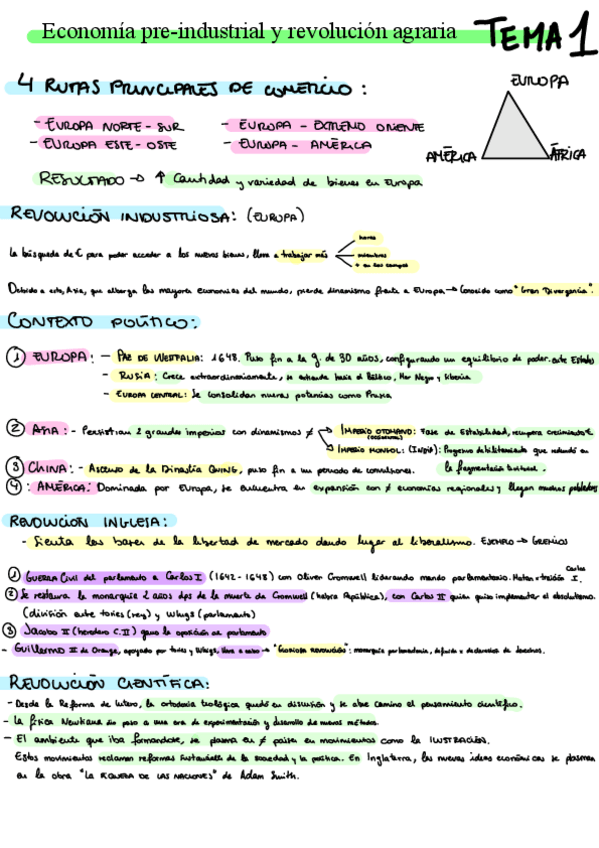 Economía pre-industrial y revolución agraria TEMA 1
4 RUTAS PRINCIPALES DE COMERCIO:
- EUROPA NORTE - SUR
- EUROPA - EXTREMO ORIENTE
- EUROPA ESTE - OSTE
- EUROPA - AMÉRICA
EUROPA
AMÉRICA
ÁFRICA
RESULTADO → ↑ Cantidad y variedad de bienes en Europa
REVOLUCIÓN INDUSTRIOSA: (EUROPA)
horas
La búsqueda de € para poder acceder a los nuevos bienes, lleva a trabajar más
miembros
+ en los campos
Debido a esto, Asia, que alberga las mayores economías del mundo, pierde dinamismo frente a Europa → Conocido como "Gran Divergencia".
CONTEXTO POLÍTICO:
① EUROPA: - PAZ DE WESTFALIA: 1648. Puso fin a la g. de 30 años, configurando un equilibrio de poder entre Estado
- RUSIA: Crece extraordinariamente, se extiende hacia el Báltico, Mar Negro y Siberia
- EUROPA CENTRAL: Se consolidan nuevas potencias como Prusia
② ASIA: - Persistían 2 grandes imperios con dinamismos ≠
IMPERIO OTOMANO: Fase de Estabilidad, recupera crecimiento €
IMPERIO MONGOL: (INDIA): Progresivo debilitamiento que redundó en
la fragmentación territorial.
③ CHINA: - Ascenso de la Dinastía QUING, puso fin a un periodo de convulsiones.
④: AMÉRICA: Dominada por Europa, se encuentra en expansión con ≠ economías regionales y llegan muchos pobladores
REVOLUCIÓN INGLESA:
- Sienta las bases de la libertad de mercado dando lugar al liberalismo. EJEMPLO → GREMIOS
① GUERRA Civil del parlamento a Carlos I (1642 - 1648) con Oliver Cromwell liderando mando parlamentario. Matan x traición Carlos I.
② Se restaura la monarquía 2 años dps de la muerte de Cromwell (había República), con Carlos II quien quiso implementar el absolutismo.
(división entre tories (rey) y Whigs (parlamento)
③ Jacobo II (heredero C.II) gana la oposición al parlamento
- Guillermo III de Orange, apoyado por tories y Whigs, lleva a cabo → "GLORIOSA REVOLUCIÓN": monarquía parlamentaria, definida x declaración de derechos.
REVOLUCIÓN CIENTÍFICA:
- Desde la Reforma de Lutero, la ortodoxia teológica quedó en discusión y se abre camino el pensamiento científico.
- La física Newtiana dio paso a una era de experimentación y desarrollo de nuevos métodos.
- El ambiente que iba formandose, se plasma en ≠ países en movimientos como la ILUSTRACIÓN.
Estos movimientos reclaman reformas sustanciales de la sociedad y la política. En Inglaterra, las nuevas ideas económicas se plasman
en la obra "LA RIQUEZA DE LAS NACIONES" de Adam Smith.